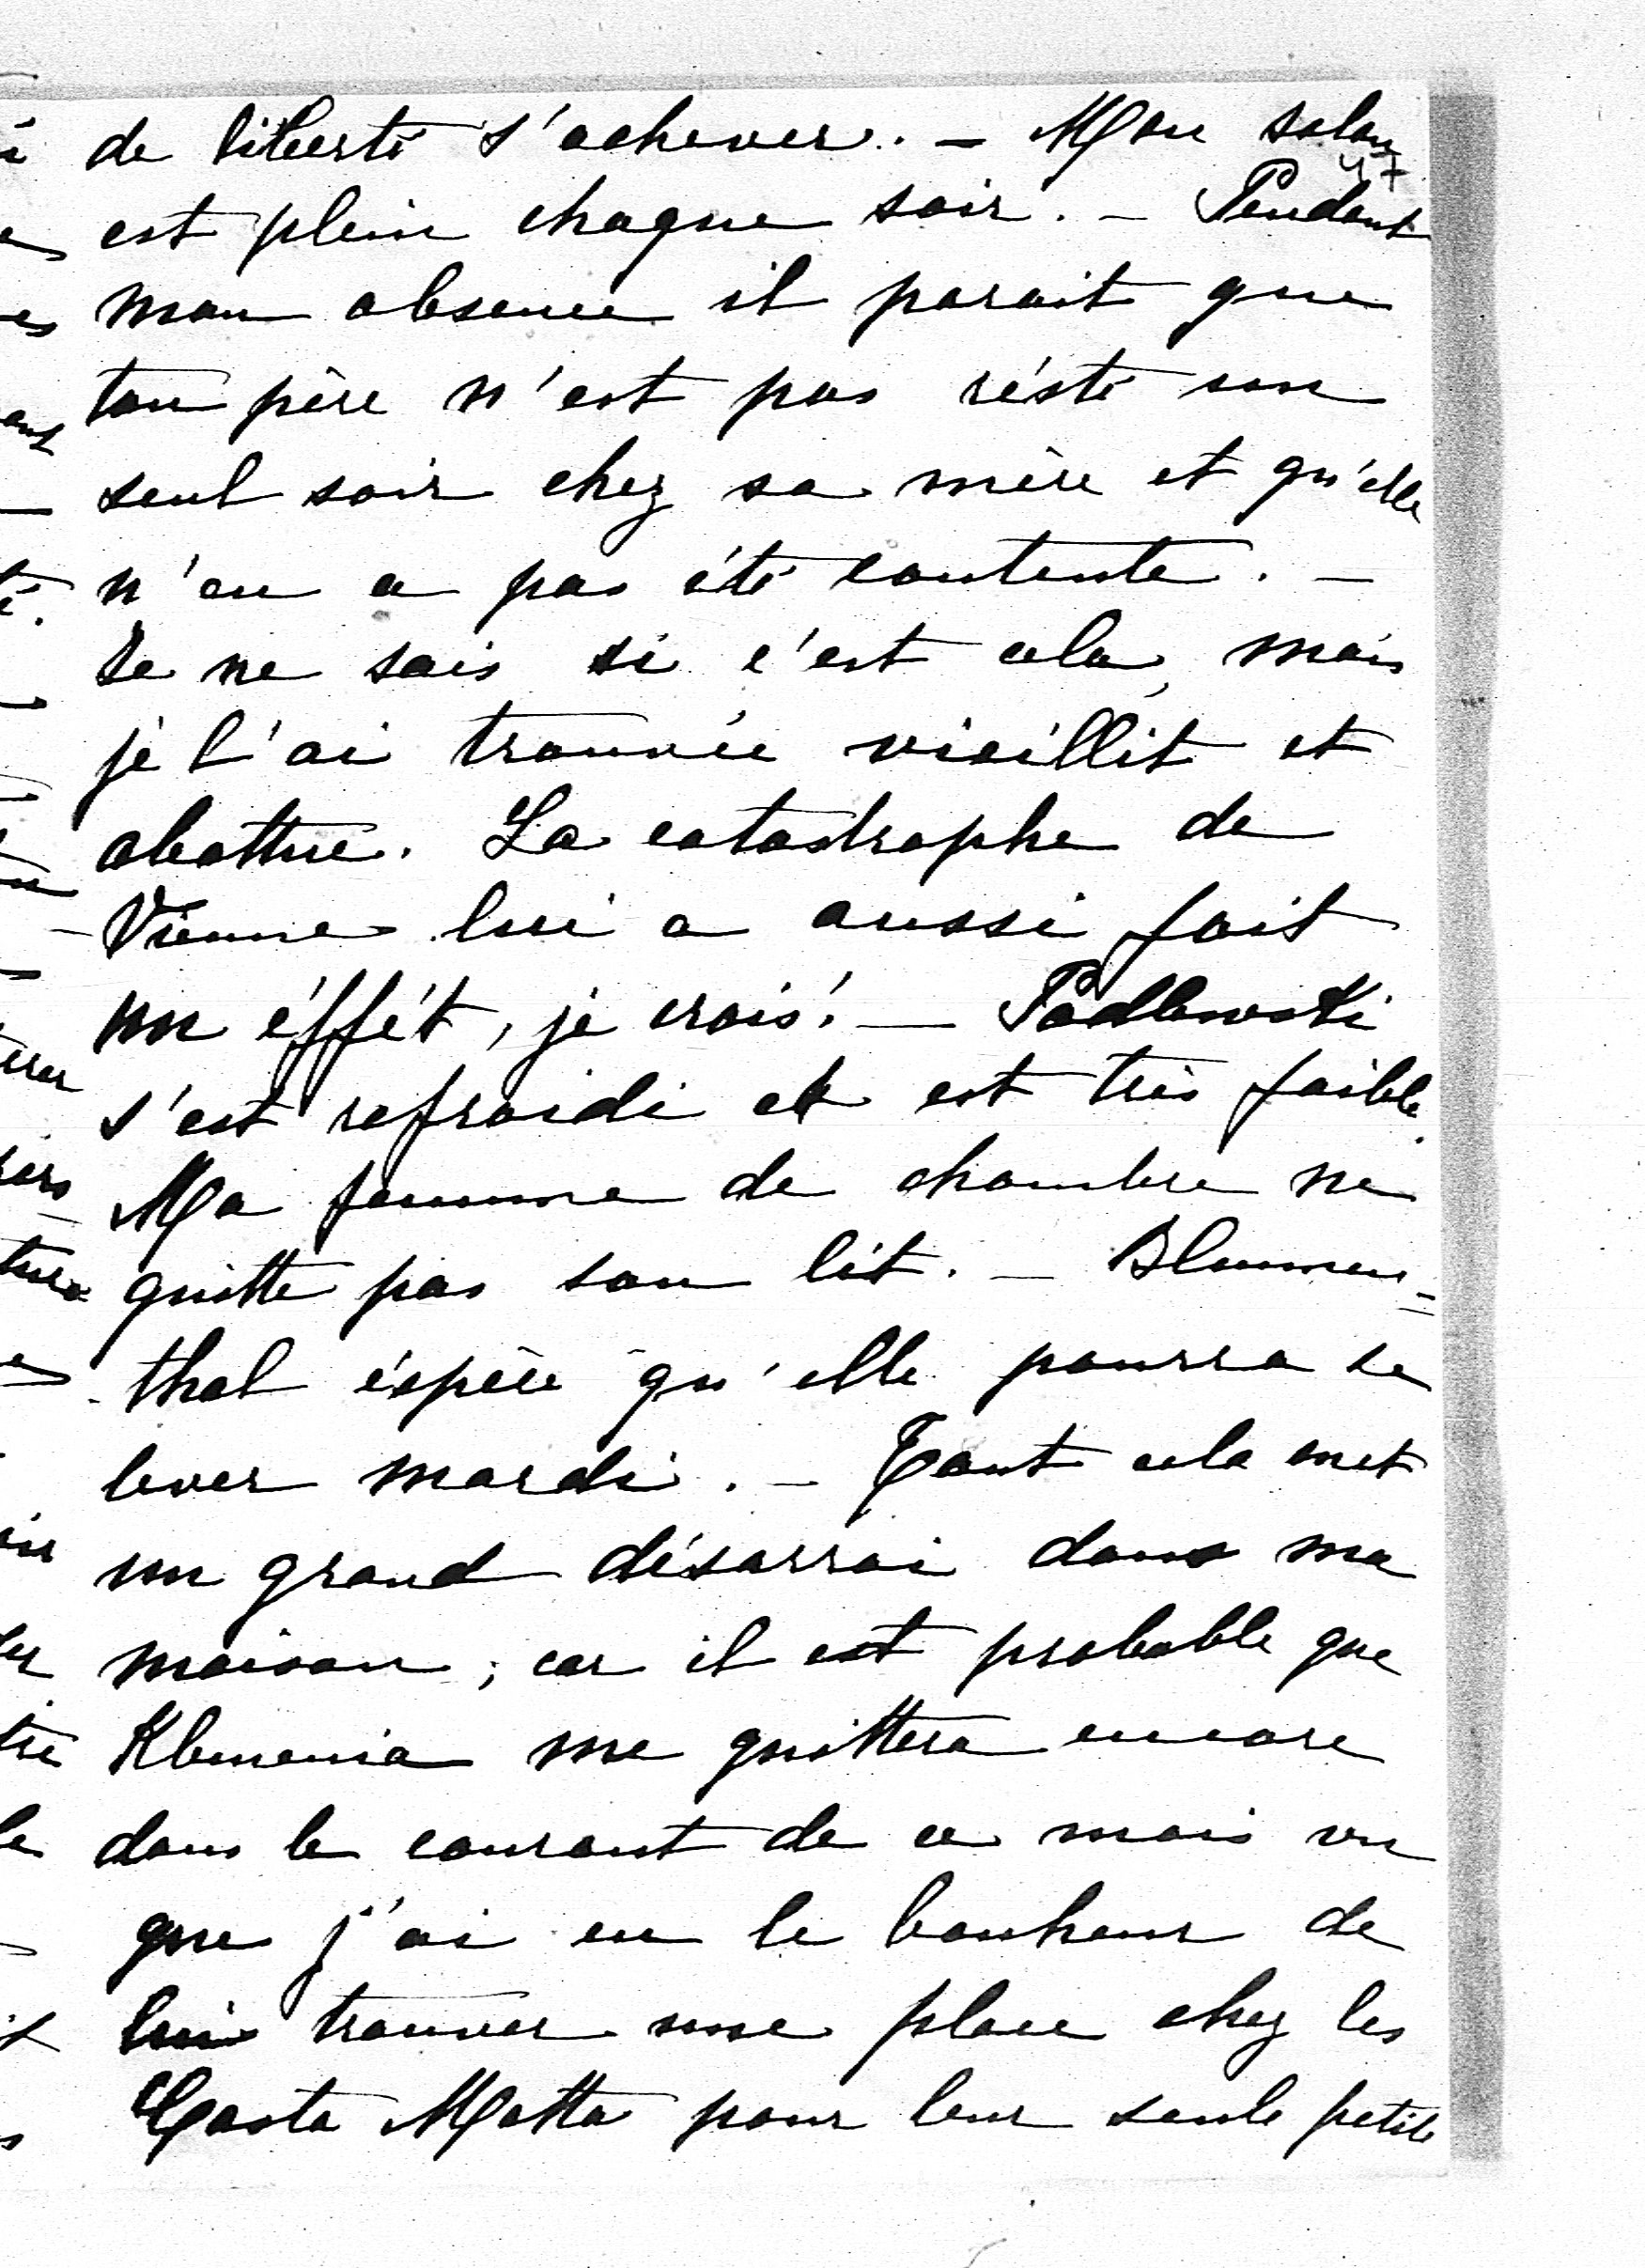 de liberté s'achever. – Mon salon
47
est plein chaque soir. – Pendant
mon absence il parait que
ton père n'est pas résté un
seul soir chez sa mère et qu'elle
n'en a pas été contente. –
Je ne sais si c'est cela, mais
je l'ai trouvée vieillit et
abattue. La catastrophe de
Vienne lui a aussi fait
un éffét, je crois! – Podlewski
s'est refroidi et est très faible.
Ma femme de chambre ne
quitte pas son lit. – Blumen-
thal éspère qu'elle pourra se
lever mardi. – Tout cela met
un grand désarroi dans ma
maison; car il est probable que
Klemenia me quittera encore
dans le courant de ce mois vu
que j'ai eu le bonheur de
lui trouver une place chez les
Costa Motta pour leur seule petite